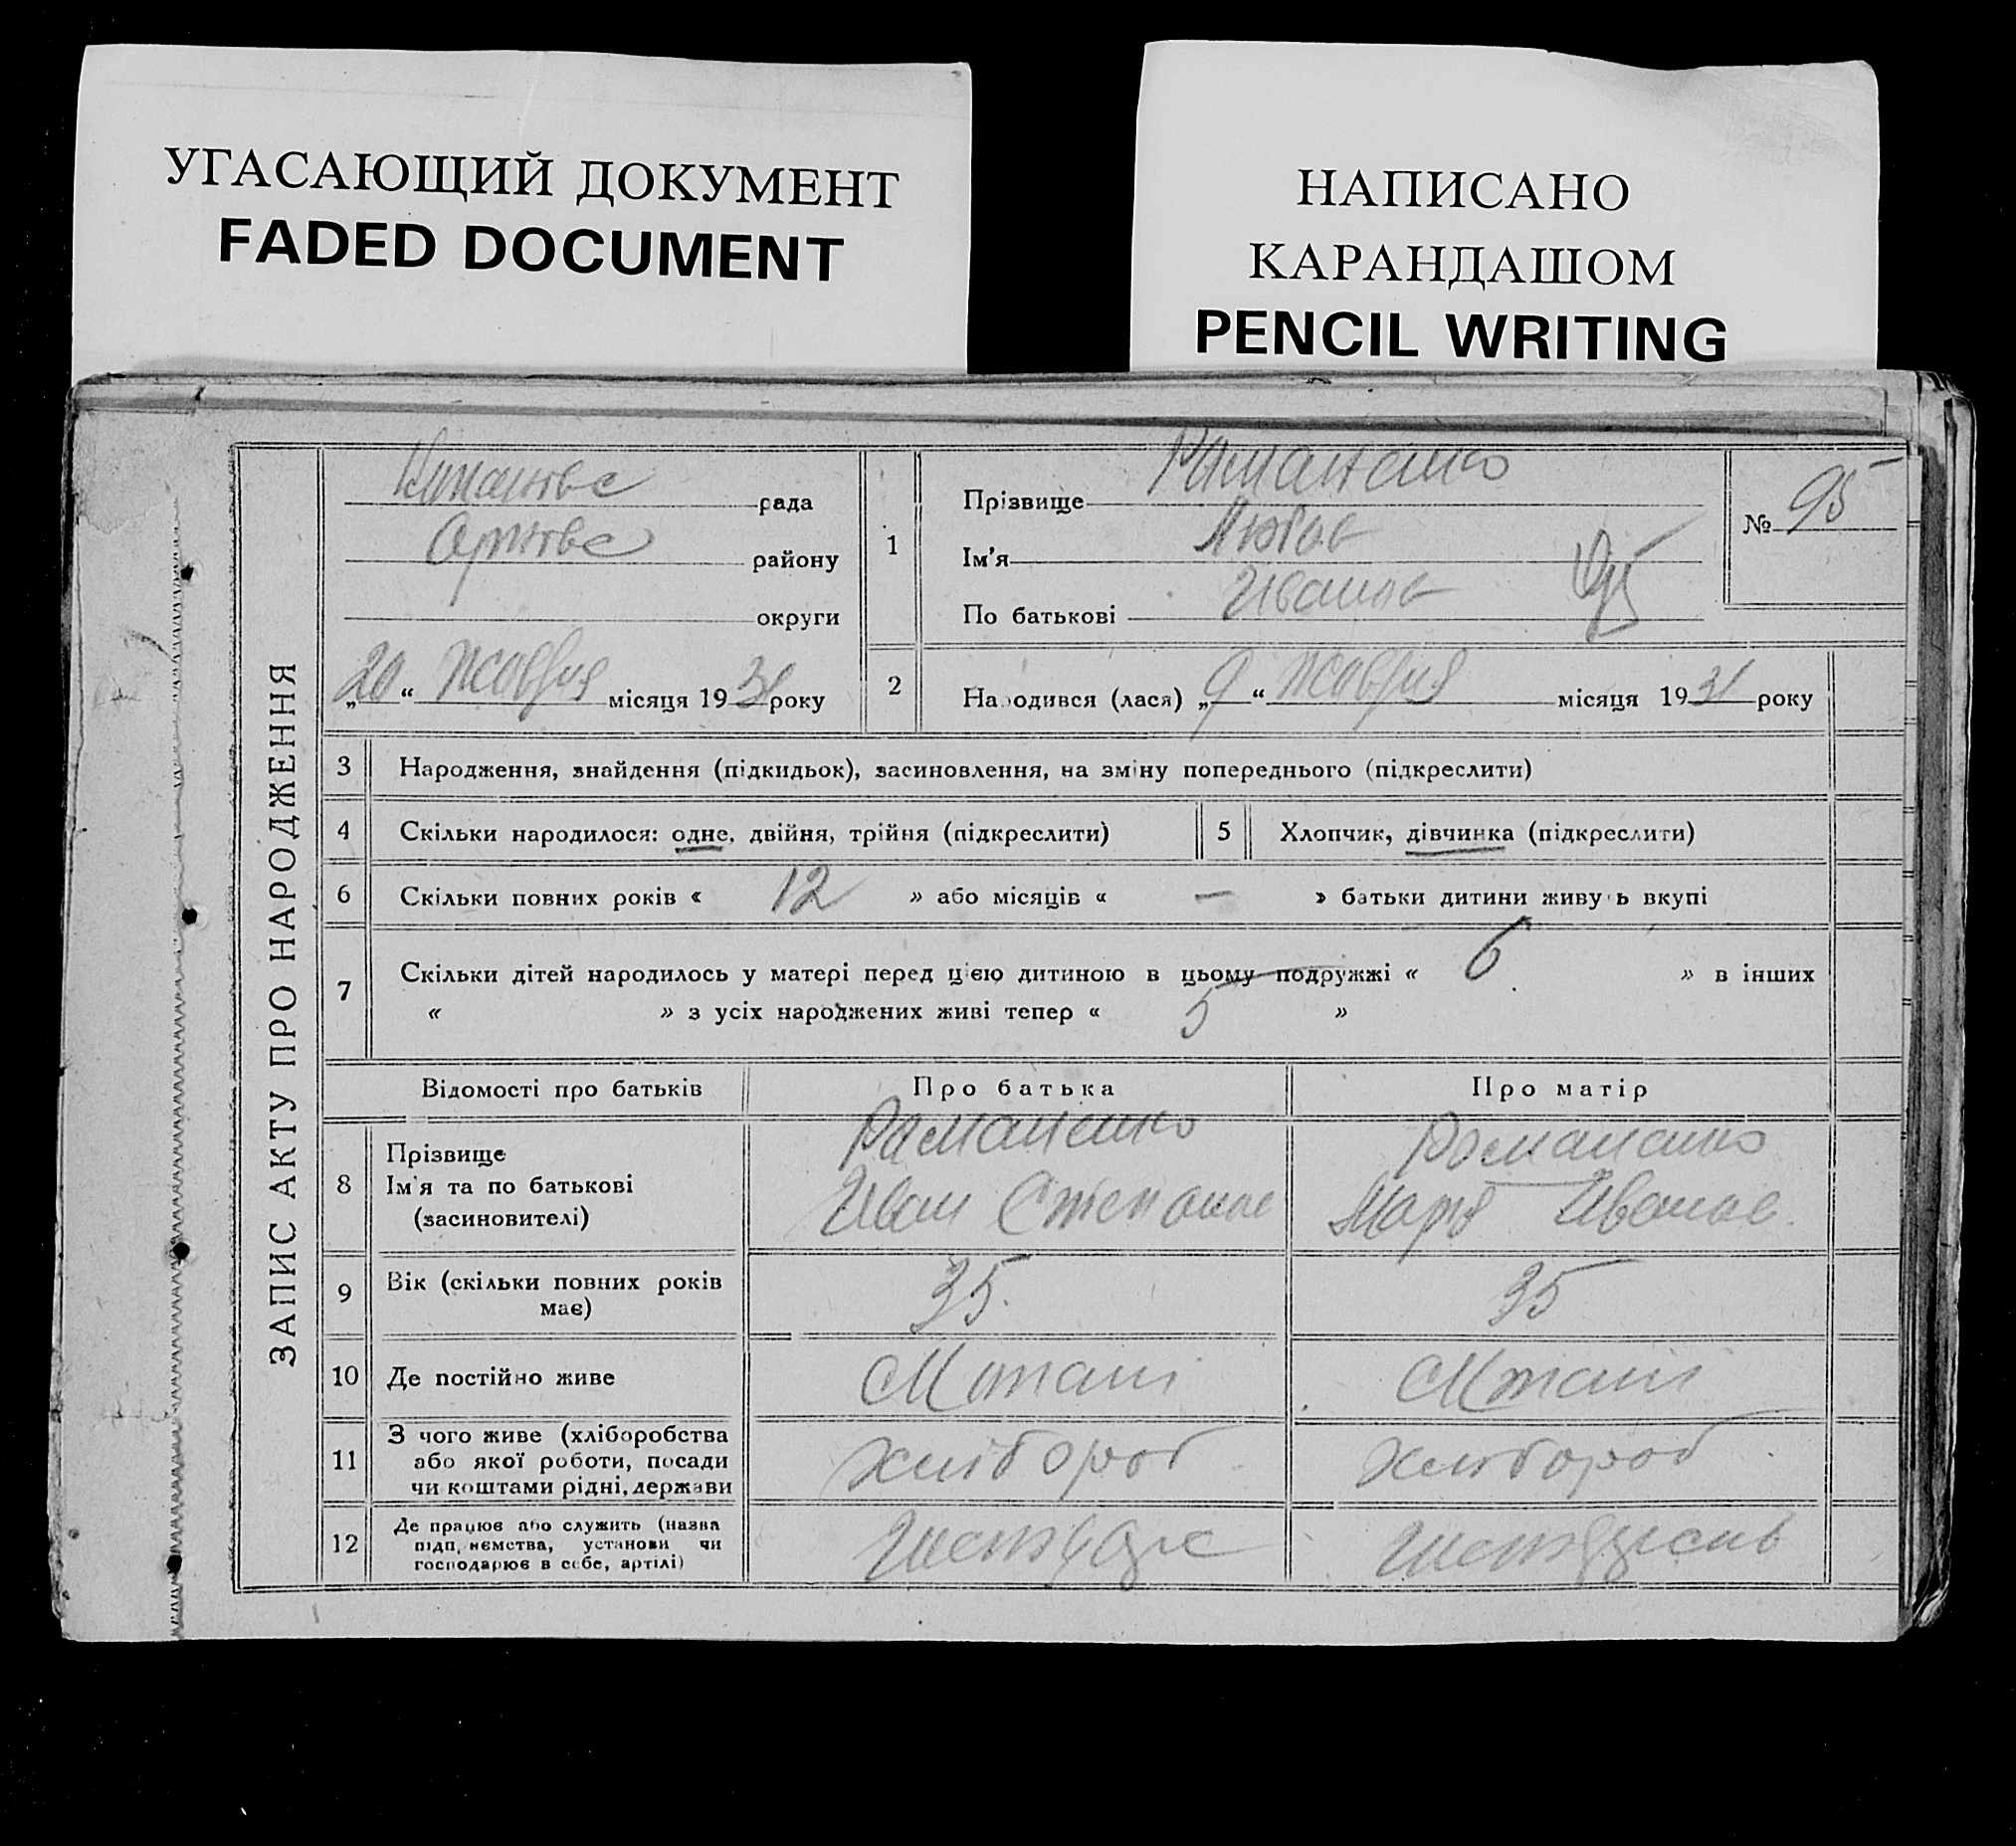 УГАСАЮЩИЙ ДОКУМЕНТ
FADED DOCUMENT
НАПИСАНО
КАРАНДАШОМ
PENCIL WRITING
ЗАПИС АКТУ ПРО НАРОДЖЕННЯ
рада
району
округи
„20“ Жовтня місяця 1931 року
1
Прізвище Романенко
Ім'я Любов
По батькові Иванов
№ 95
2
Народився (лася) „9“ Жовтня місяця 1931 року
3 Народження, знайдення (підкидьок), засиновлення, на зміну попереднього (підкреслити)
4 Скільки народилося: одне, двійня, трійня (підкреслити)
5 Хлопчик, дівчинка (підкреслити)
6 Скільки повних років « 12 » або місяців « — » батьки дитини живуть вкупі
7 Скільки дітей народилось у матері перед цією дитиною в цьому подружжі « 6 » в інших
« » з усіх народжених живі тепер « 5 »
Відомості про батьків
Про батька
Про матір
8 Прізвище
Ім'я та по батькові
(засиновителі)
Романенко
Иван Степанов
Романенко
Марія Иванов.
9 Вік (скільки повних років
має)
35.
35
10 Де постійно живе
11 З чого живе (хліборобства
або якої роботи, посади
чи коштами рідні, держави
хлібороб
хлібороб
12 Де працює або служить (назва
підприємства, установи чи
господарює в себе, артілі)